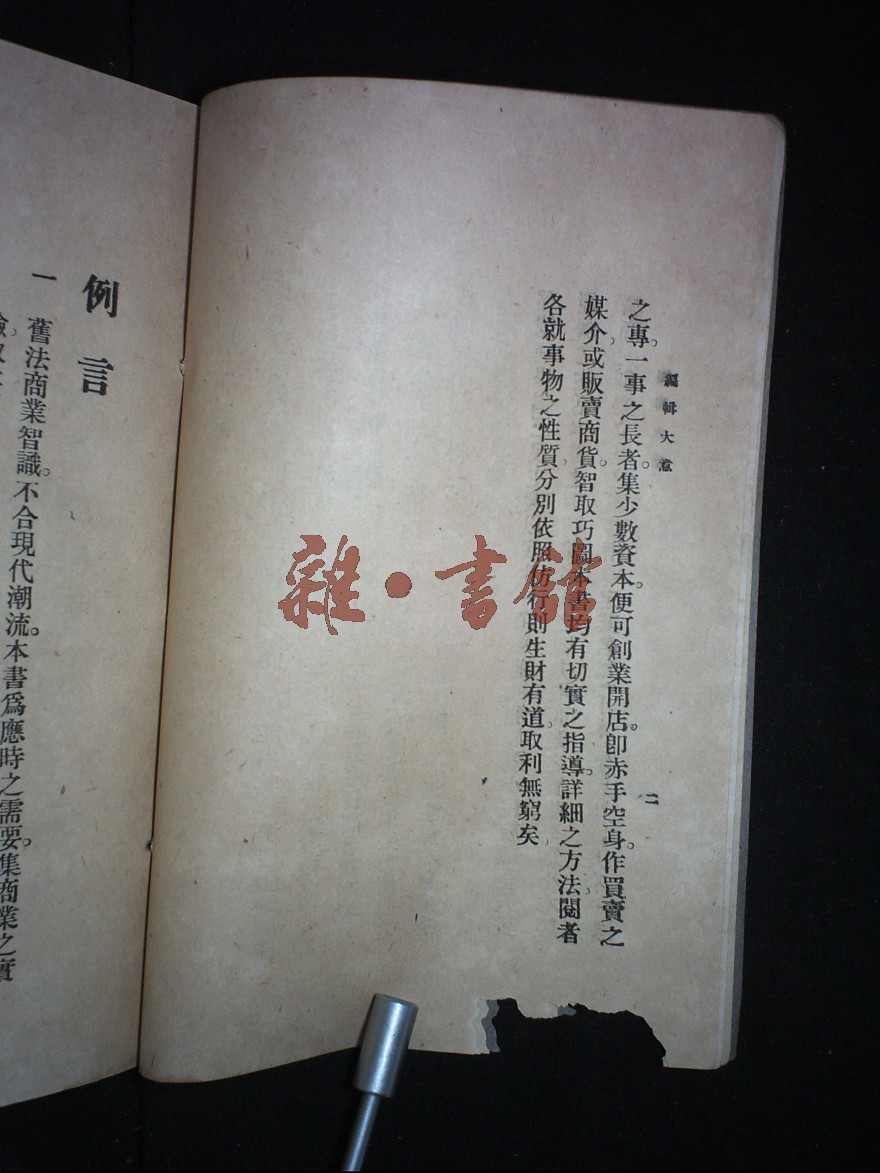 編輯大意
二
之專。一事之長者。集少數資本。便可創業開店。卽赤手空身。作買賣之
媒介。或販賣商貨。智取巧圖。本書均有切實之指導。詳細之方法。閱者
各就事物之性質。分別依照仿行。則生財有道。取利無窮矣
例言
一 舊法商業智識。不合現代潮流。本書爲應時之需要。集商業之實
雜·書館